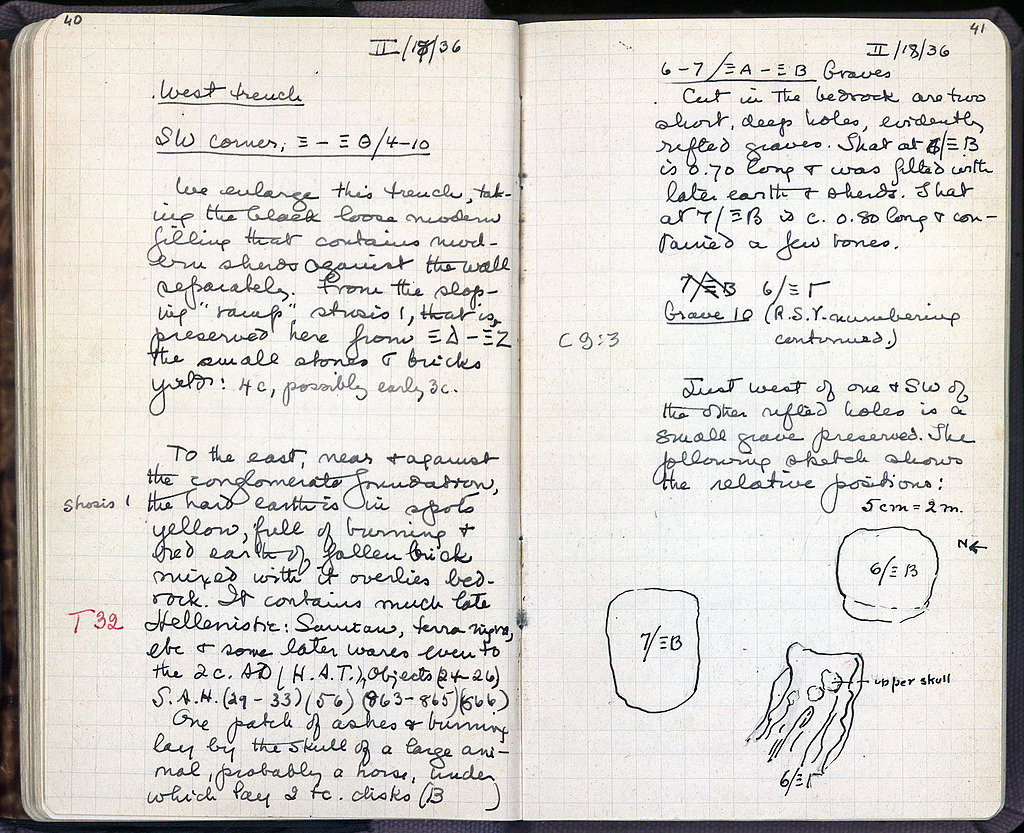 40
II/18/36
West trench
SW corner, Ξ – ΞΘ/4–10
We enlarge this trench, tak-
ing the black loose modern
filling that contains mod-
ern sherds against the wall
separately. From the slop-
ing "ramp" strosis 1, that is
preserved here from ΞΔ – ΞΖ
the small stones & bricks
yield: 4c, possibly early 3c.
To the east, near & against
the conglomerate foundation,
strosis 1
the hard earth is in spots
yellow, full of burning &
red earth of fallen brick
mixed with it overlies bed-
rock. It contains much late
T 32
Hellenistic: Samian, terra nigra,
etc & some later wares even to
the 2c. AD (H.A.T.), Objects (24–26)
S.A.H. (29–33) (56) (863–865) (866)
One patch of ashes & burning
lay by the skull of a large ani-
mal, probably a horse, under
which lay 2 tc. disks (B )
41
II/18/36
6–7/ΞA – ΞB Graves
Cut in the bedrock are two
short, deep holes, evidently
rifled graves. That at 6/ΞB
is 0.70 long & was filled with
later earth & sherds. That
at 7/ΞB is c. 0.80 long & con-
tained a few bones.
7/ΞB 6/ΞΓ
Grave 10 (R.S.Y. numbering
continued.)
C 9:3
Just west of one & SW of
the other rifled holes is a
small grave preserved. The
following sketch shows
the relative positions:
5cm = 2m.
N
6/ΞB
7/ΞB
upper skull
6/ΞΓ